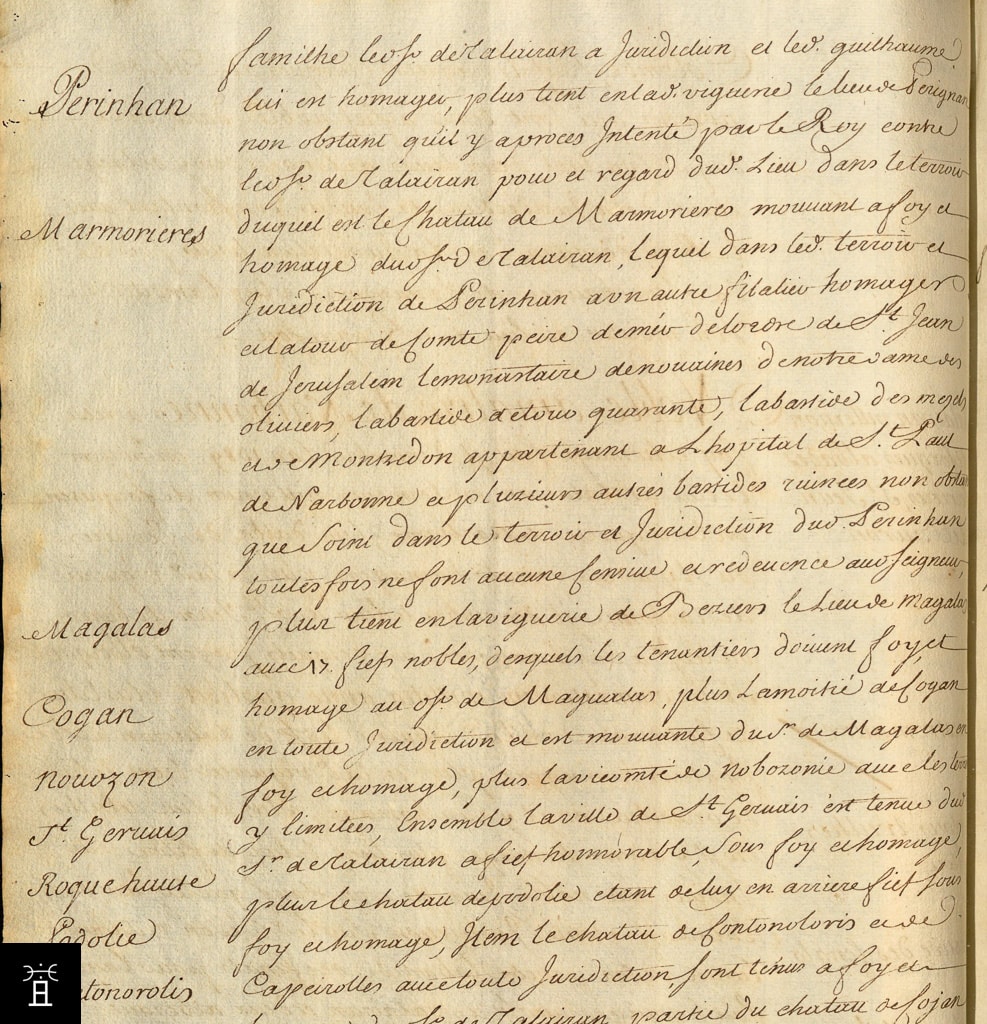 familhe leos.r de Talairan a Juridiction et led. guilhaume
Perinhan
lui en homager, plus tient en lad. viguerie le lieu de Perignan
non obstant qu'il y a proces Intenté par le Roy contre
leos.r de Talairan pour et regard dud. Lieu dans le terroir
Marmorieres
duquel est le Chatau de Marmorieres mouuant a foy et
homage duos.r De Talairan, lequel dans led. terroir et
Juridiction de Perinhan a vn autre filalier homager
et la tour de Comte peire demer de lordre de S.t Jean
de Jerusalem le monastaire de nonaines de notre dame des
oliuiers, la bastide de tour quarante, la bastide des
et de Montredon appartenant a Lhopital de S.t Paul
de Narbonne et pluzieurs autres bastides ruinées non obstan
que soint dans le terroir et Juridiction dud. Perinhan
toutesfois ne font aucune Censiue et redeuence aud seigneur,
Magalas
plus tient en la viguerie de Beziers le Lieu de Magalas
auec 17. fiefs nobles, desquels les tenantiers doiuent foy, et
Cogan
homage au os.r de Magualas, plus La moitié de Cogan
en toute Juridiction et est mouuante du s.r de Magalas en
nouozon
foy et homage, plus la vicomté de nobozonie auec les terres
S.t Geruais
y limitées, Ensemble la ville de S.t Geruais est tenue dud
S.r de Talairan a fief honnorable, sous foy et homage,
Roquehaute
plus le chatau de podolie etant de luy en arriere fief sous
Padolie
foy et homage, Item le chatau de fontonoloris et de
ntonorolis
Capeirolles auec toute Juridiction, sont tenus a foy et
de Talairan partie du chatau de Cojan